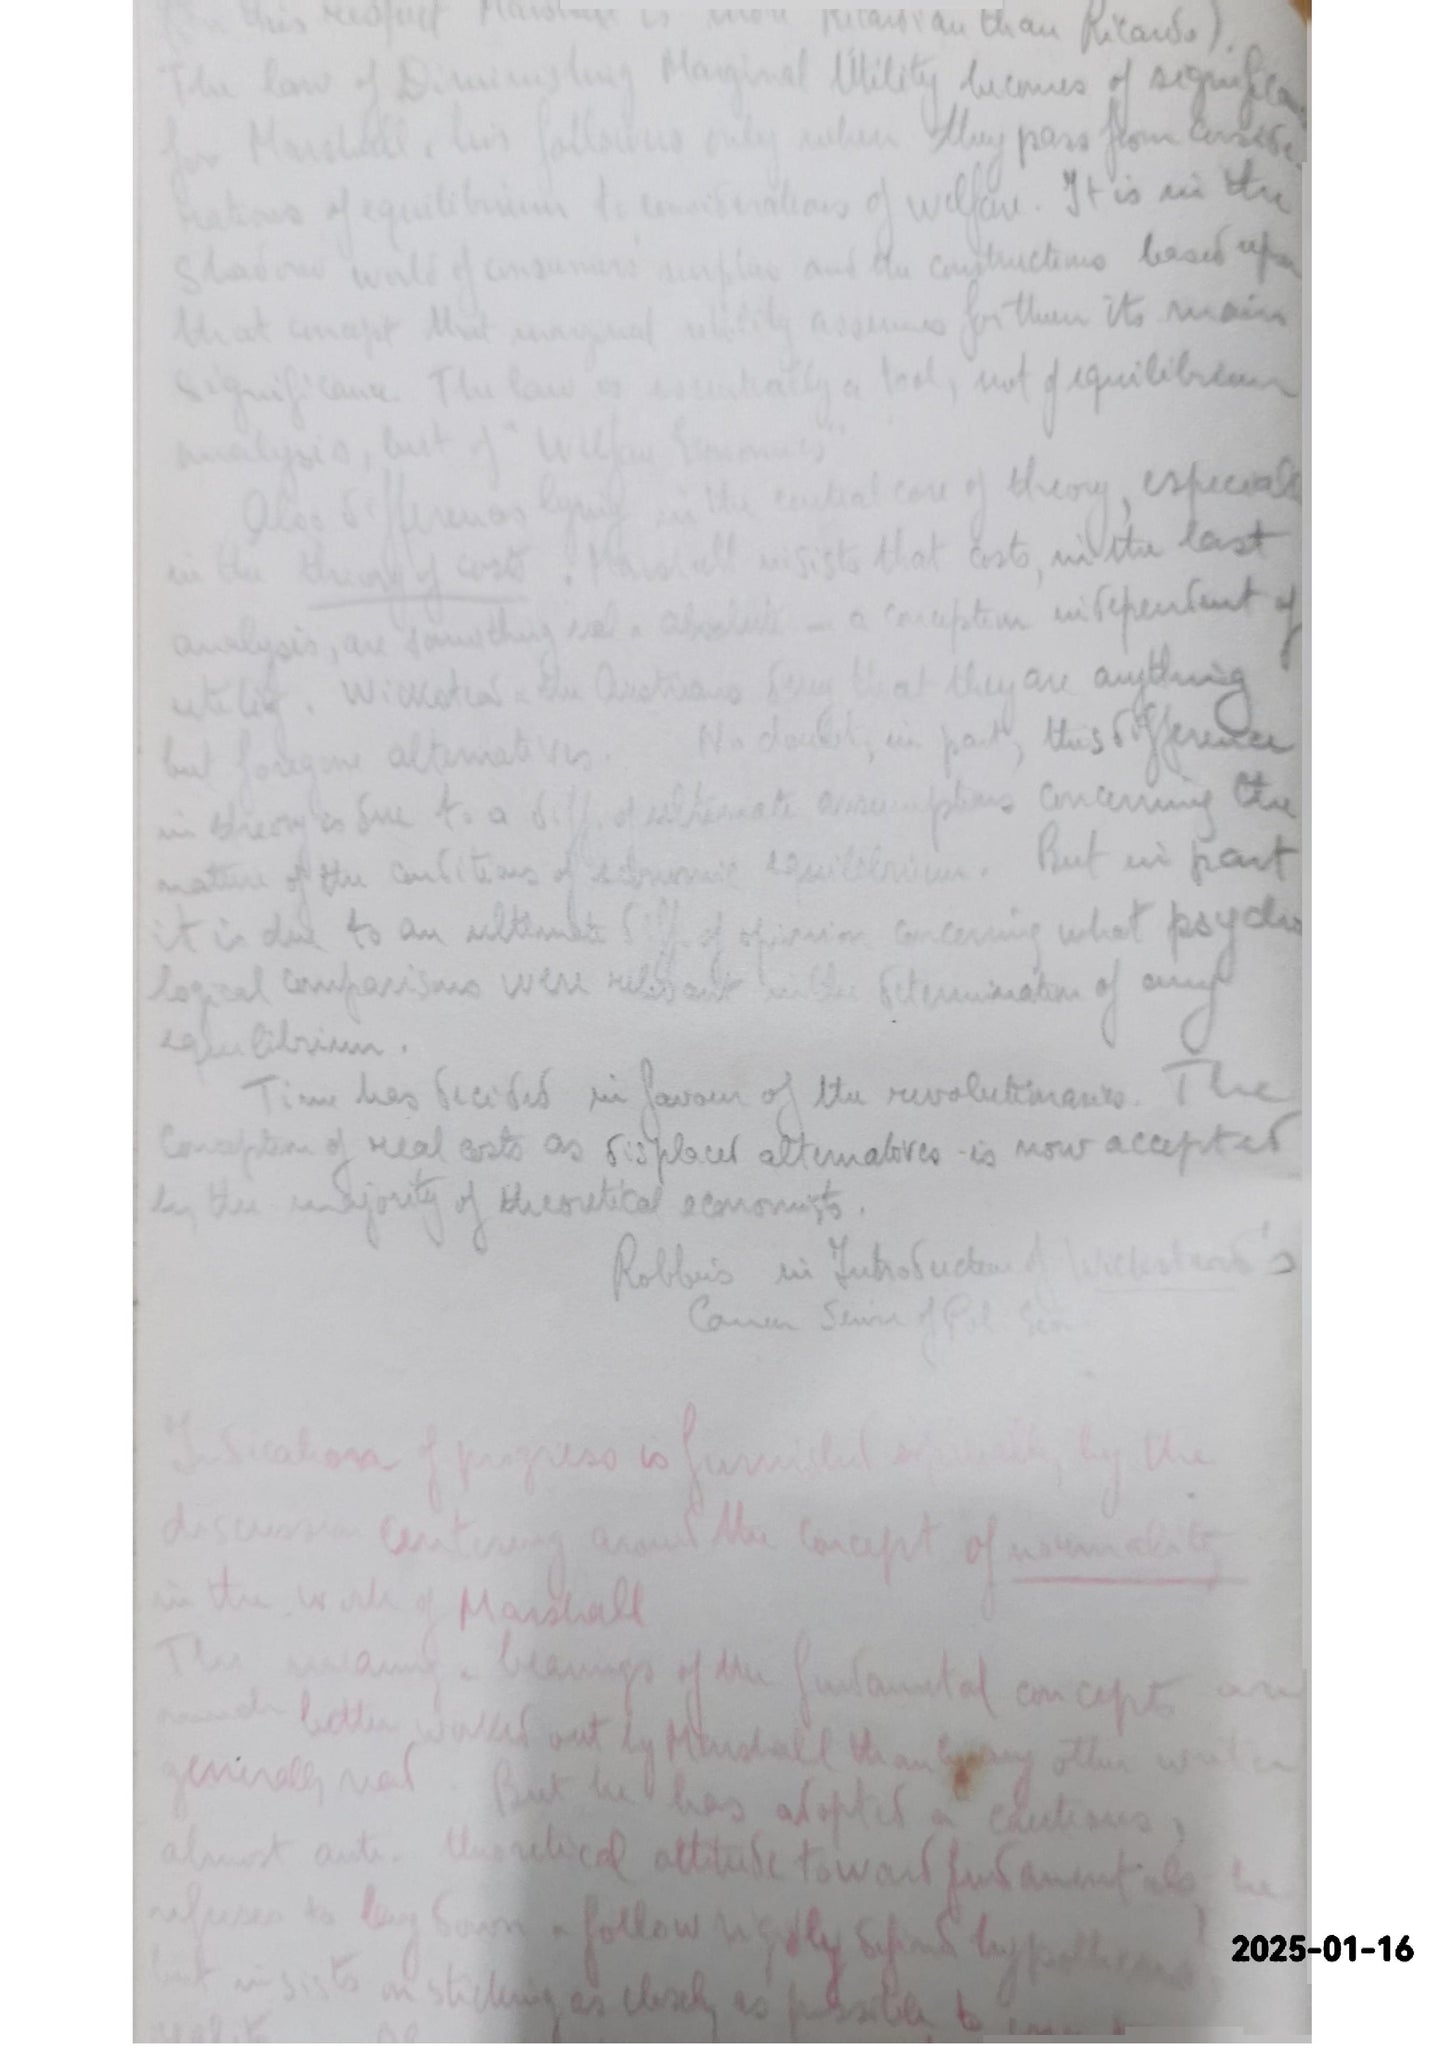 this respect Marshall is more Ricardian than Ricardo).
The law of Diminishing Marginal Utility becomes of significan
for Marshall & his followers only when they pass from conside
rations of equilibrium to considerations of welfare. It is in the
Shadow world of consumers' surplus and the constructions based upon
that concept that marginal utility assumes for them its main
significance. The law is essentially a tool, not of equilibrium
analysis, but of "Welfare Economics"
Also differences lying in the central core of theory, especiall
in the theory of costs. Marshall insists that costs, in the last
analysis, are something real & absolute — a conception independent of
utility. Wicksteed & the Austrians deny that they are anything
but foregone alternatives. No doubt, in part, this difference
in theory is due to a diff. of ultimate assumptions concerning the
nature of the conditions of economic equilibrium. But in part
it is due to an ultimate diff. of opinion concerning what psycho
logical comparisons were relevant in the determination of any
equilibrium.
Time has decided in favour of the revolutionaries. The
Conception of real costs as displaced alternatives is now accepted
by the majority of theoretical economists.
Robbins in Introduction of Wicksteed's
Common Sense of Pol. Econ
Indications of progress is furnished by the
discussion centering around the concept of normality
in the work of Marshall
The meaning & bearings of the fundamental concepts are
much better worked out by Marshall than by any other writer
generally read. But he has adopted a cautious,
almost anti-theoretical attitude toward fundamentals, he
refuses to lay down & follow rigidly defined hypotheses
but insists on sticking as closely as possible to
reality
2025-01-16